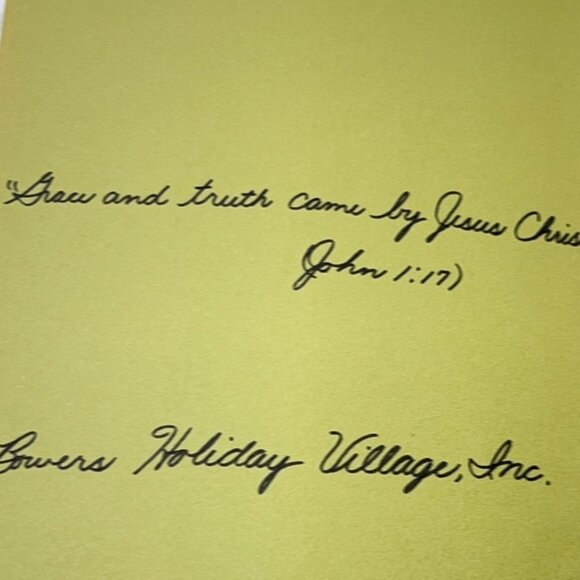 "Grace and truth came by Jesus Chris
John 1:17)
Bowers Holiday Village, Inc.